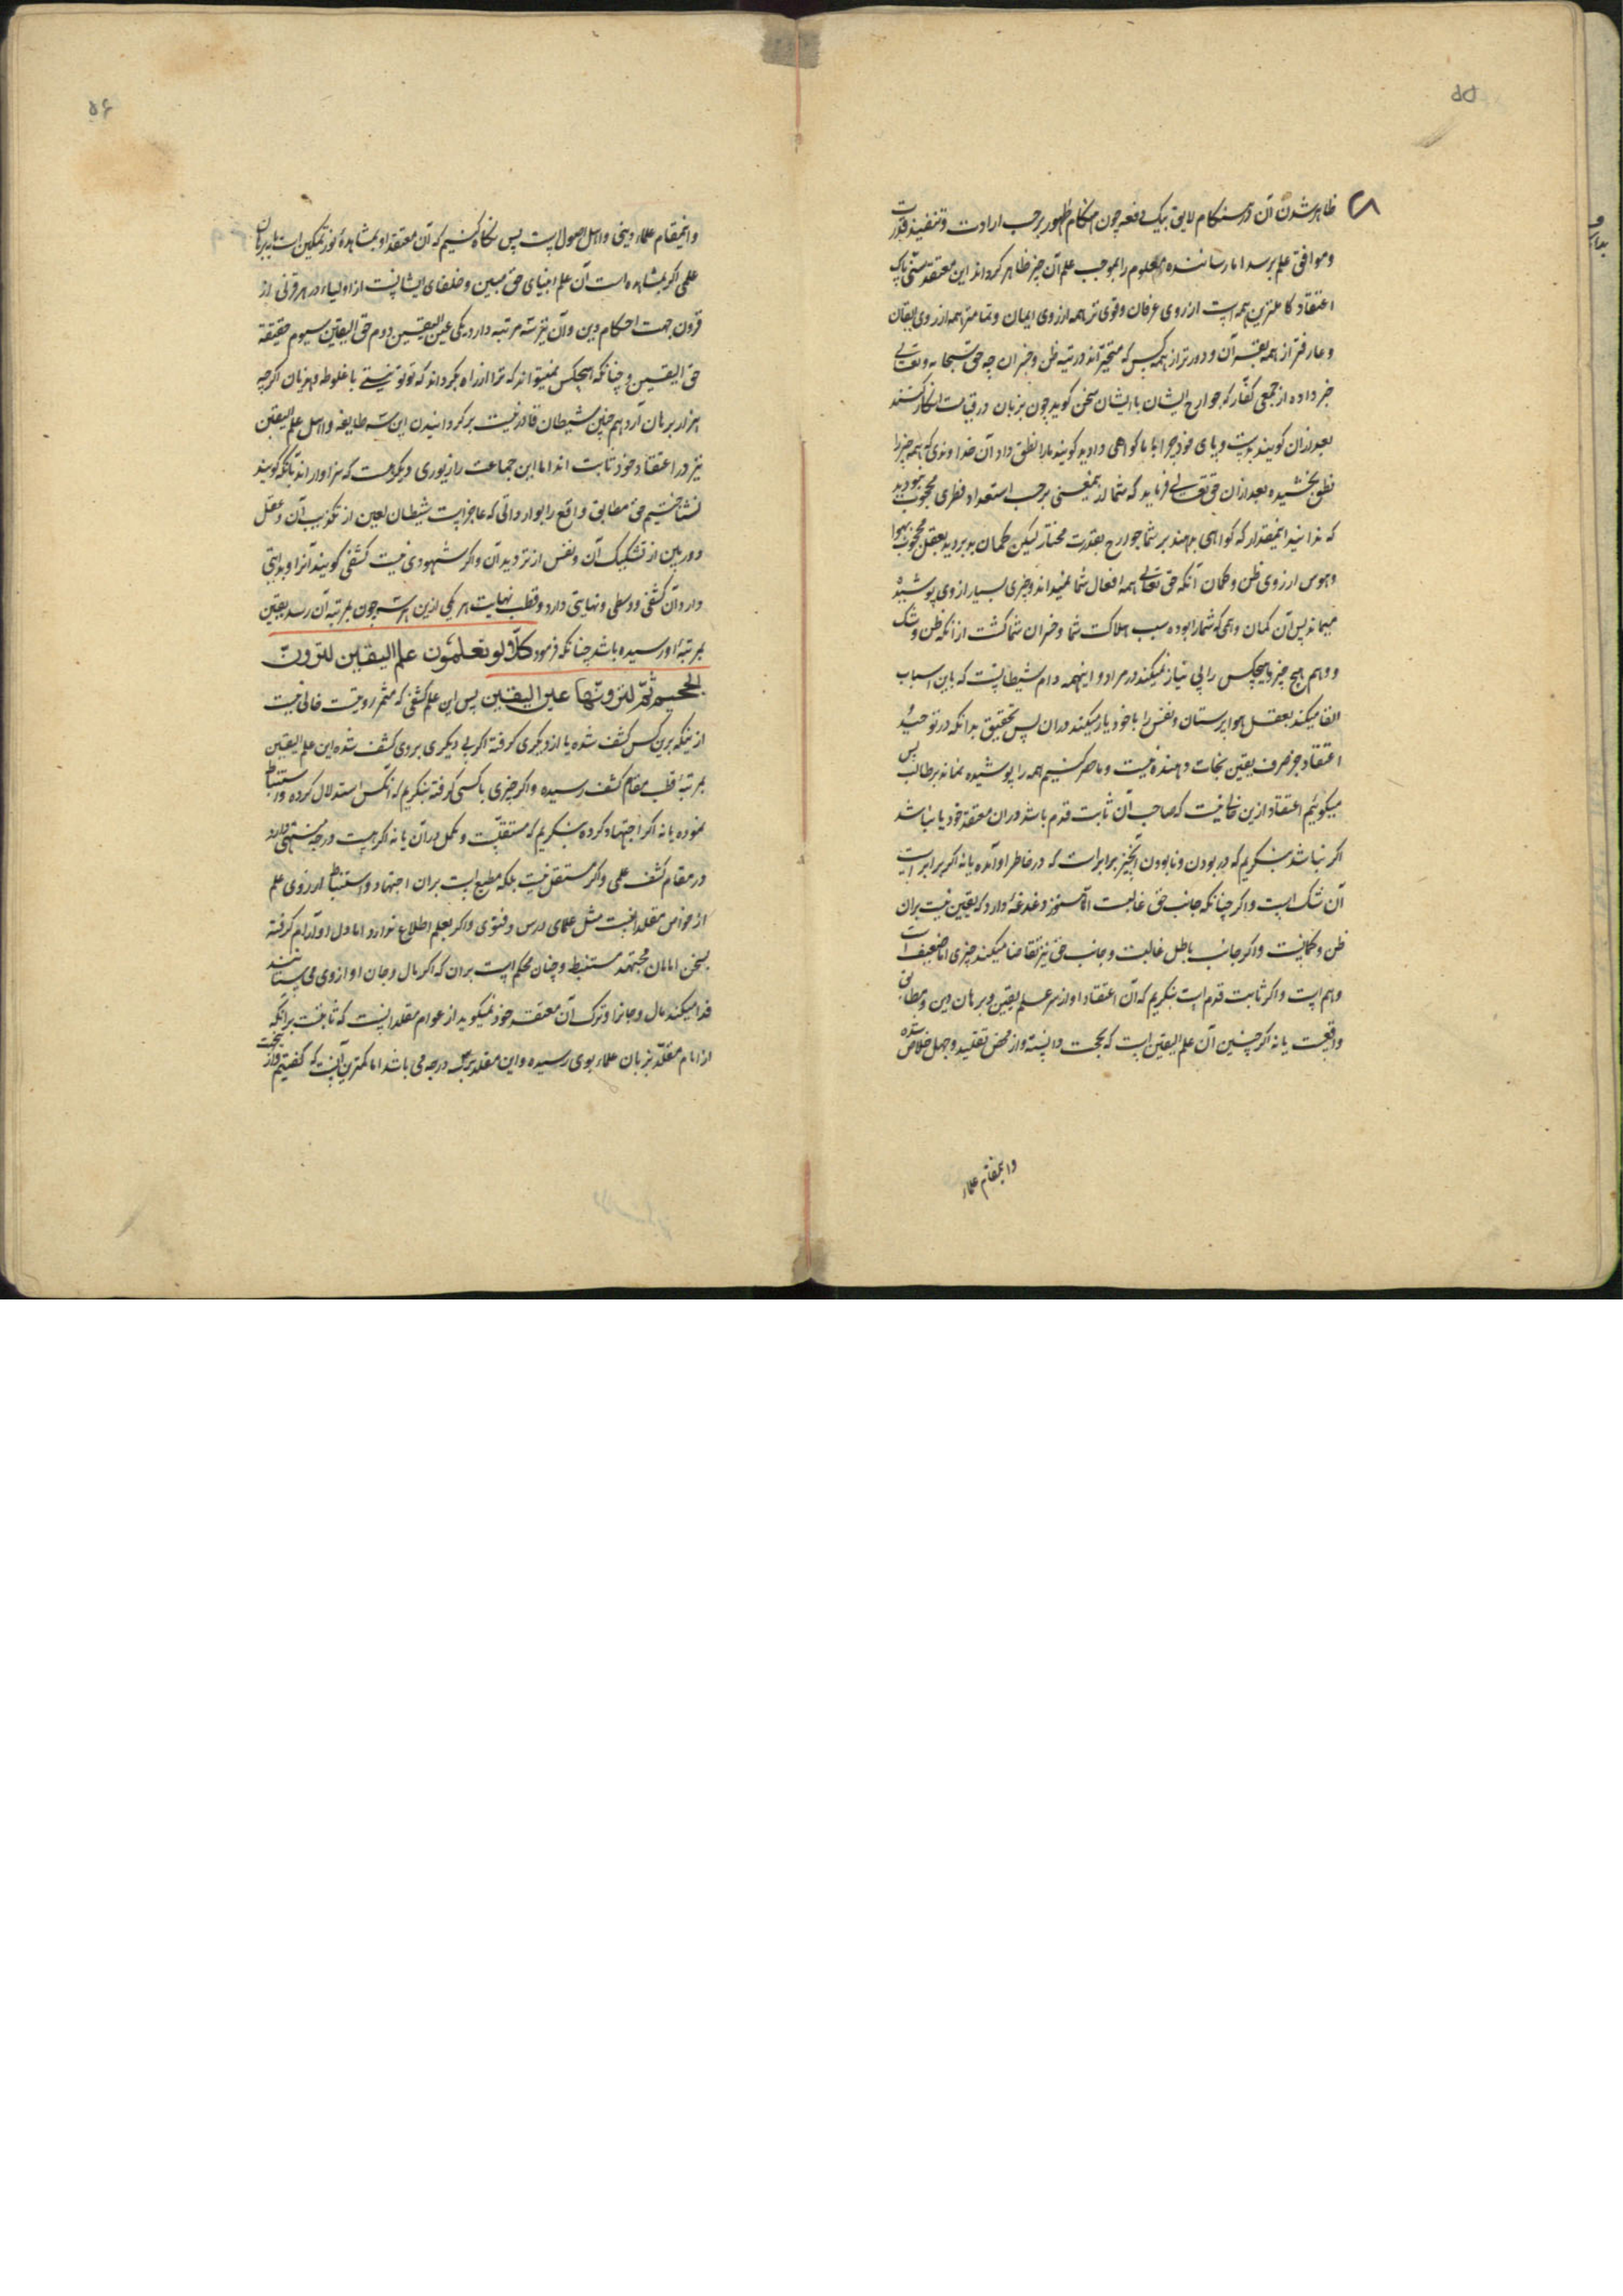 ۵۵
ظاهر شدن آن در هنگام لایق بیک دفعه چون هنگام ظهور برحسب ارادت و تنفیذ قدرت
و موافق علم برسد اما رساننده معلوم را بموجب علم آن چیز ظاهر گرداند این معتقد سنی پاک
اعتقاد کاملترین همه است از روی عرفان و قوی تر همه از روی ایمان و تمامتر همه از روی ایقان
و عارفتر از همه بقرآن و دورتر از همه کس که متحیر اند در تیه ظن و خسران چه حق سبحانه و تعالی
خبر داده از جمعی کفار که جوارح ایشان با ایشان سخن گوید چون بزبان در قیامت انکار کنند
بعد از آن گویند بپوست و پای خود چرا با ما گواهی دادید گویند ما را نطق داد آن خداوندی که همه چیز را
نطق بخشیده بعد از آن حق تعالی فرماید که شما از این معنی برحسب استعداد فطری محجوب نبودید
که ندانید اینمقدار که گواهی بدهند بر شما جوارح بقدرت مختار لیکن گمان بد بردید بعقل محجوب بهوا
و هوس از روی ظن و گمان آنکه حق تعالی همه افعال شما نمیداند و چیزی بسیار از وی پوشیده
میماند پس آن گمان واهی که شما را بوده سبب هلاکت شما و خسران شما گشت از آنکه ظن و شک
و وهم هیچ چیز هیچکس را بی نیاز نمیکند در مراد و اینهمه دام شیطانیست که باین اسباب
القا میکند بعقل هواپرستان و نفس را با خود یار میکند در آن پس تحقیق بدانکه در توحید
اعتقاد جز صرف یقین نجات دهنده نیست و ما حصر کنیم همه را پوشیده نماند بر طالب پس
میگوئیم اعتقاد ازین خالی نیست که صاحب آن ثابت قدم باشد در آن معتقد خود یا نباشد
اگر نباشد بنگریم که در بودن و نابودن آنچیز برابر است که در خاطر او آمده یا نه اگر برابر است
آن شک است و اگر چنانکه جانب حق غالبست اما هنوز دغدغه دارد که یقین نیست بر آن
ظن و گمانیست و اگر جانب باطل غالبست و جانب حق نیز تقاضا میکند چیزی اما ضعیف است
وهم است و اگر ثابت قدم است بنگریم که آن اعتقاد او از سر علم یقین و برهان این و مطابق
واقعست یا نه اگر چنین آن علم الیقین است که بحجت دانسته و از محض تقلید و جهل خلاص شده
و اینمقام علماء
۵۶
و اینمقام علماء دینی و اهل اصول است پس نگاه کنیم که آن معتقد او بمشاهده نور تمکین است یا ببرهان
علمی اگر بمشاهده است آن علم انبیای حق مبین و خلفای ایشانست از اولیاء در هر قرنی از
قرون جهت احکام دین و آن نیز سه مرتبه دارد یکی عین الیقین دوم حق الیقین سیوم حقیقة
حق الیقین و چنانکه هیچکس نمیتواند که ترا از راه بگرداند که تو تو نیستی با غلوطه و هزیان اگرچه
هزار برهان آرد هم چنین شیطان قادر نیست برگردانیدن این سه طایفه و اهل علم الیقین
نیز در اعتقاد خود ثابت اند اما این جماعت را نیز نوری دیگرست که سزاوار اند بآنکه گویند
شناختیم حق مطابق واقع را بواردانی که عاجز است شیطان لعین از تکذیب آن و عقل
دوربین از تشکیک آن و نفس از تردید آن و اگر شهودی نیست کشفی گویند آنرا و بدایتی
دارد آن کشفی و وسطی و نهایتی دارد و قطب نهایت هر یکی ازین هر سه چون بمرتبه آن رسد یقین
بمرتبه او رسیده باشد چنانکه فرمود کلّا لو تعلمون علم الیقین لترونّ
الجحیم ثمّ لترونّها عین الیقین پس این علم کشفی که مثمر رویتست خالی نیست
از اینکه برین کس کشف شده یا از دیگری گرفته اگر بی دیگری بر وی کشف شده این علم الیقین
بمرتبه قطب مقام کشف رسیده و اگر چیزی با کسی گرفته بنگریم که آنکس استدلال کرده و استنباط
نموده یا نه اگر اجتهاد کرده بنگریم که مستقلّست و مکمل در آن یا نه اگر هست درجه منتهی دارد
در مقام کشف علمی و اگر مستقل نیست بلکه مطیع است بر آن اجتهاد و استنباط از روی علم
از خواص مقلدانست مثل علمای درس و فتوی و اگر بعلم اطلاع ندارد اما دل او آرام گرفته
بسخن امامان مجتهد مستنبط و چنان محکم است بر آن که اگر مال و جان او از وی می ستانند
فدا میکند مال و جانرا و ترک آن معتقد خود نمیگوید از عوام مقلدانست که ثابتست بر آنکه
از امام مقلّد بزبان علماء بوی رسیده و این مقلد بر سه درجه می باشد اما کمترین آنست که گفتیم و از